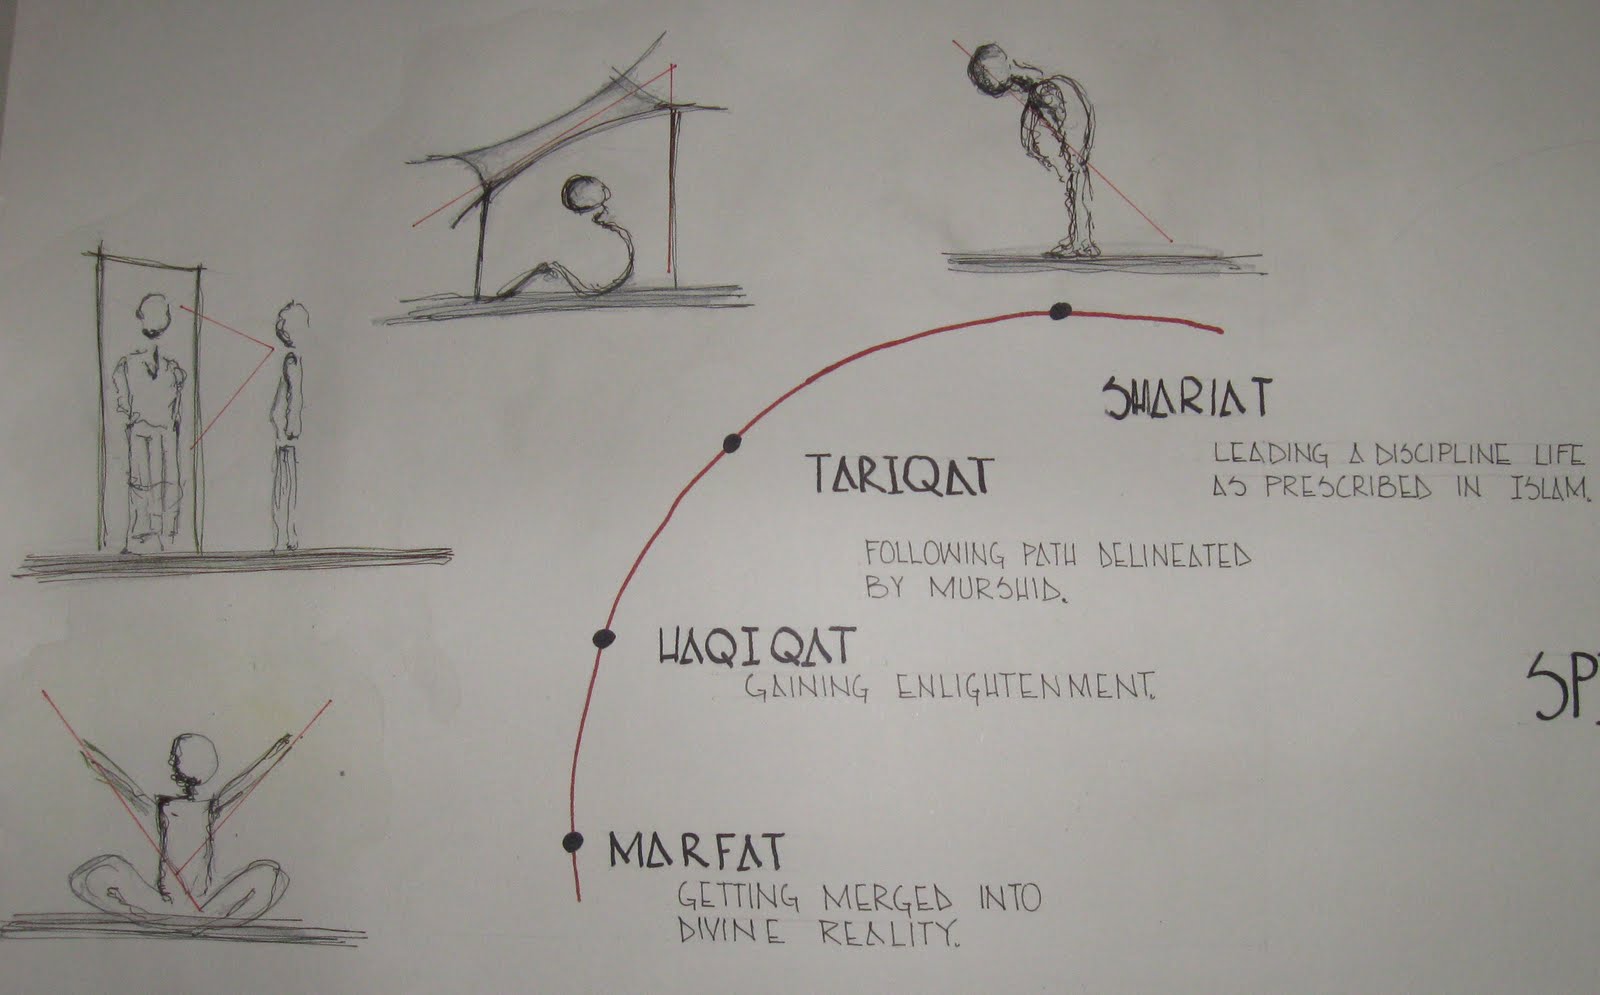 SHARIAT
LEADING A DISCIPLINE LIFE
AS PRESCRIBED IN ISLAM.
TARIQAT
FOLLOWING PATH DELINEATED
BY MURSHID.
HAQIQAT
GAINING ENLIGHTENMENT.
MARFAT
GETTING MERGED INTO
DIVINE REALITY.